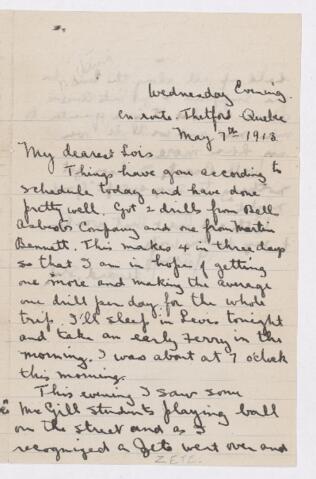 Wednesday Evening.
En route. Thetford - Quebec
May 7th 1913.
My dearest Lois
Things have gone according to
schedule today and have done
pretty well. Got 2 drills from Bell
Asbestos Company and one from Martin
Bennett. This makes 4 in three days
so that I am in hope of getting
one more and making the average
one drill per day for the whole
trip. I'll sleep in Levis tonight
and take an early ferry in the
morning. I was about at 7 o'clock
this morning.
This evening I saw some
McGill students playing ball
on the street and as I
recognized a Zete went over and
ZETE.